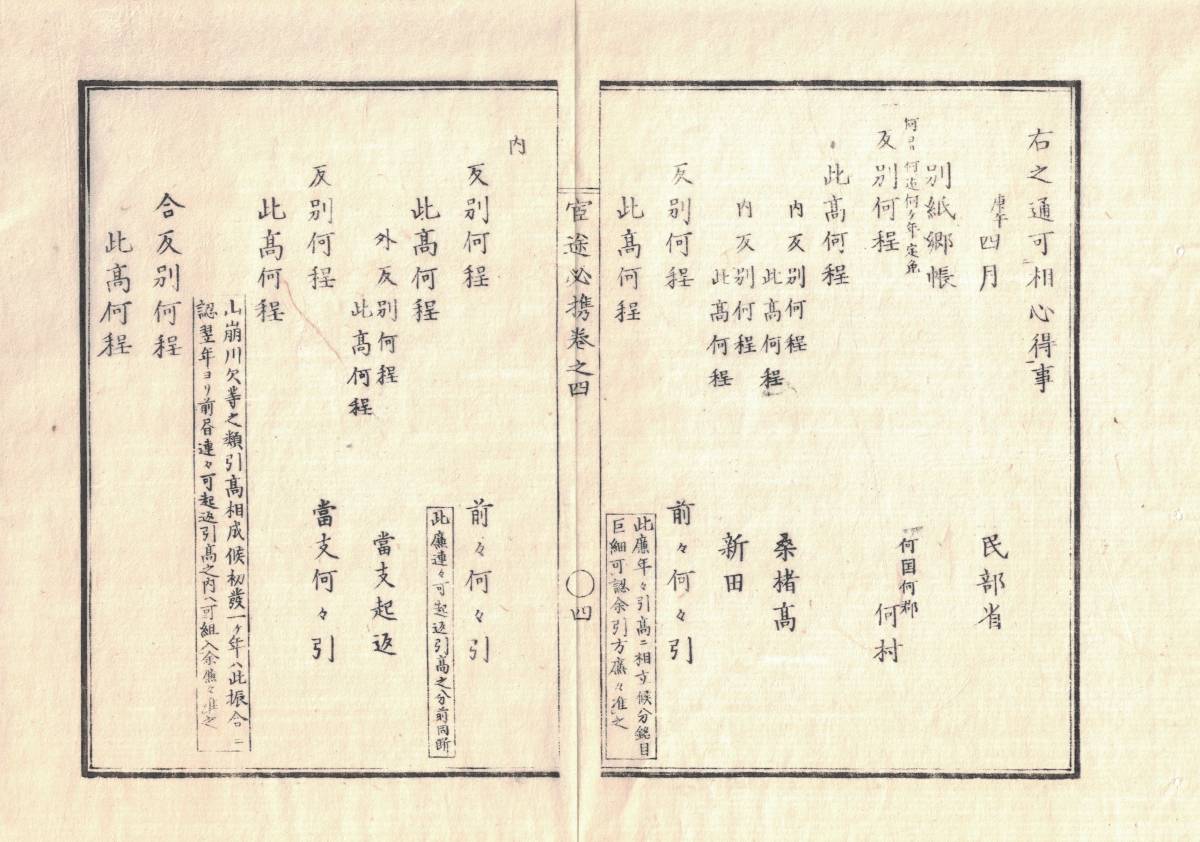 右之通可相心得事
庚午四月　民部省
別紙郷帳
何ヨリ何迄何ケ年定免
反別何程　何国何郡何村
此髙何程
内反別何程　桑楮髙
此髙何程
内反別何程　新田
此髙何程
反別何程　前々何々引
此髙何程
此廉年々引髙ニ相立候分銘目
巨細可認余引方廉々准之
官途必携巻之四　〇四
内
反別何程　前々何々引
此髙何程
此廉連々可起返引髙之分前同断
外反別何程　當支起返
此髙何程
反別何程　當支何々引
此髙何程
山崩川欠等之類引髙相成候初發一ケ年ハ此振合ニ
認翌年ヨリ前書連々可起返引髙之内ヘ可組入余廉々准之
合反別何程
此髙何程